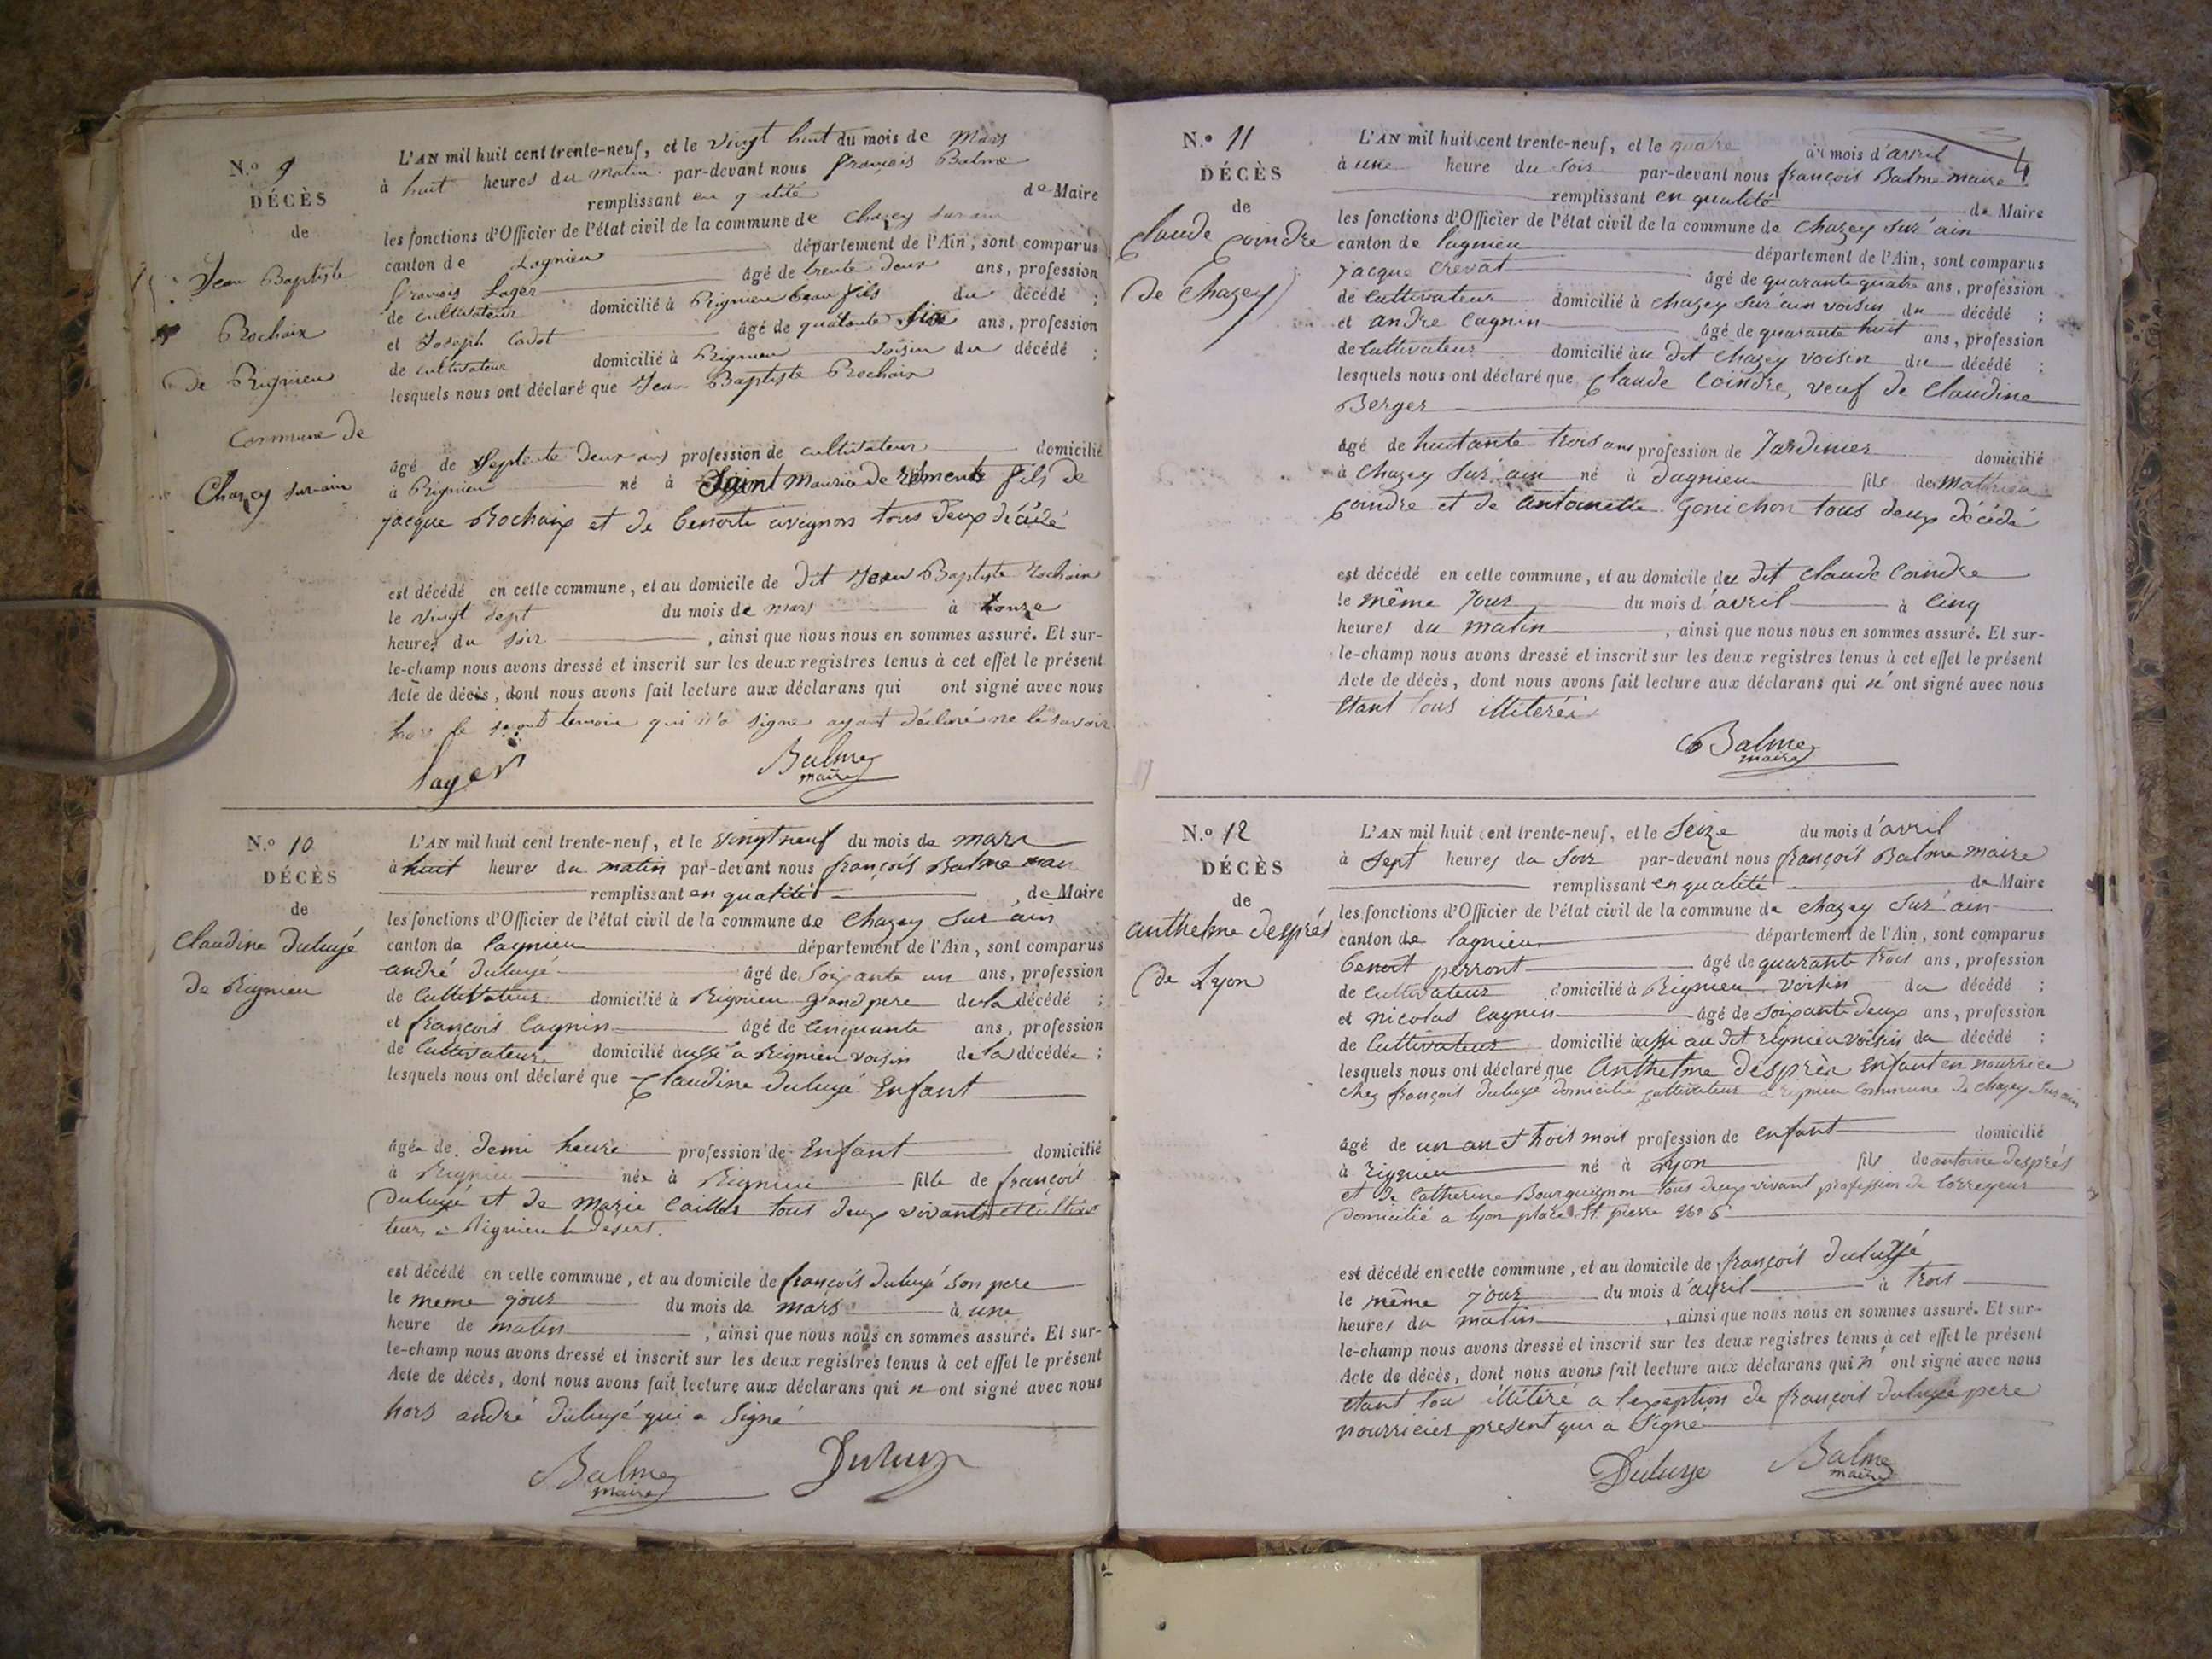 N.º 9
DÉCÈS
de
Jean Baptiste
Rochaix
de Rignieu
Commune de
Chazey sur ain
L'AN mil huit cent trente-neuf, et le vingt huit du mois de Mars
à huit heures du matin par-devant nous françois Balme
remplissant en qualité de Maire
les fonctions d'Officier de l'état civil de la commune de Chazey sur ain
canton de Lagnieu département de l'Ain, sont comparus
françois Lager âgé de trente deux ans, profession
de cultivateur domicilié à Rignieu beau fils du décédé ;
et Joseph Cadot âgé de quarante six ans, profession
de cultivateur domicilié à Rignieu voisin du décédé ;
lesquels nous ont déclaré que Jean Baptiste Rochaix
âgé de Septente deux ans profession de cultivateur domicilié
à Rignieu né à Saint Maurice de Rémens fils de
jacque Rochaix et de benoite avignon tous deux décédé
est décédé en cette commune, et au domicile de dit Jean Baptiste Rochaix
le vingt sept du mois de mars à honze
heures du soir , ainsi que nous nous en sommes assuré. Et sur-
le-champ nous avons dressé et inscrit sur les deux registres tenus à cet effet le présent
Acte de décès, dont nous avons fait lecture aux déclarans qui ont signé avec nous
hors le second temoin qui n'a signe ayant déclaré ne le savoir
layer Balme
maire
N.º 10
DÉCÈS
de
Claudine Duluyé
de Rignieu
L'AN mil huit cent trente-neuf, et le vingt neuf du mois de mars
à huit heures du matin par-devant nous françois Balme mair
remplissant en qualité de Maire
les fonctions d'Officier de l'état civil de la commune de Chazey sur ain
canton de lagnieu département de l'Ain, sont comparus
andré duluyé âgé de soixante un ans, profession
de Cultivateur domicilié à Rignieu grand pere de la décédé ;
et françois Cagnin âgé de cinquante ans, profession
de Cultivateur domicilié aussi a Rignieu voisin de la décédée ;
lesquels nous ont déclaré que Claudine duluyé Enfant
âgée de demi heure profession de Enfant domicilié
à Rignieu née à Rignieu fille de françois
duluyé et de marie Caillat tous deux vivants et cultiva
teurs a Rignieu le desert.
est décédé en cette commune, et au domicile de françois duluyé son pere
le meme jour du mois de mars à une
heure de matin , ainsi que nous nous en sommes assuré. Et sur-
le-champ nous avons dressé et inscrit sur les deux registres tenus à cet effet le présent
Acte de décès, dont nous avons fait lecture aux déclarans qui n ont signé avec nous
hors andré duluyé qui a signé
Balme Duluy
maire
N.º 11
DÉCÈS
de
Claude Coindre
de Chazey
4
L'AN mil huit cent trente-neuf, et le quatre du mois d'avril
à une heure du soir par-devant nous françois Balme maire
remplissant en qualité de Maire
les fonctions d'Officier de l'état civil de la commune de Chazey sur ain
canton de lagnieu département de l'Ain, sont comparus
Jacque Crevat âgé de quarante quatre ans, profession
de Cultivateur domicilié à Chazey sur ain voisin du décédé ;
et andré Cagnin âgé de quarante huit ans, profession
de Cultivateur domicilié au dit Chazey voisin du décédé ;
lesquels nous ont déclaré que Claude Coindre, veuf de Claudine
Berger
âgé de huitante trois ans profession de Jardinier domicilié
à Chazey sur ain né à dagnieu fils de mathieu
Coindre et de antoinette Gonichon tous deux décédé
est décédé en cette commune, et au domicile du dit Claude Coindre
le même jour du mois d'avril à cinq
heures du matin , ainsi que nous nous en sommes assuré. Et sur-
le-champ nous avons dressé et inscrit sur les deux registres tenus à cet effet le présent
Acte de décès, dont nous avons fait lecture aux déclarans qui n'ont signé avec nous
étant tous illiteréi
Balme
maire
N.º 12
DÉCÈS
de
anthelme desprès
de Lyon
L'AN mil huit cent trente-neuf, et le Seize du mois d'avril
à Sept heures du soir par-devant nous françois Balme maire
remplissant en qualité de Maire
les fonctions d'Officier de l'état civil de la commune de Chazey sur ain
canton de lagnieu département de l'Ain, sont comparus
benoit perront âgé de quarante trois ans, profession
de Cultivateur domicilié à Rignieu voisin du décédé ;
et Nicolas Cagnin âgé de soixante deux ans, profession
de Cultivateur domicilié aussi au dit rignieu voisin du décédé :
lesquels nous ont déclaré que Anthelme desprès Enfant en nourrice
chez françois duluyé domicilié cultivateur a rignieu commune de chazey sur ain
âgé de un an et trois mois profession de enfant domicilié
à rignieu né à Lyon fils de antoine desprès
et de Catherine Bourguignon tous deux vivant profession de corroyeur
domicilié a lyon place St. pierre
est décédé en cette commune, et au domicile de françois duluyé
le même jour du mois d'avril à trois
heures du matin , ainsi que nous nous en sommes assuré. Et sur-
le-champ nous avons dressé et inscrit sur les deux registres tenus à cet effet le présent
Acte de décès, dont nous avons fait lecture aux déclarans qui n' ont signé avec nous
étant tou illitéré a l'exeption de françois duluyé pere
nourricier present qui a signé
Duluye Balme
maire